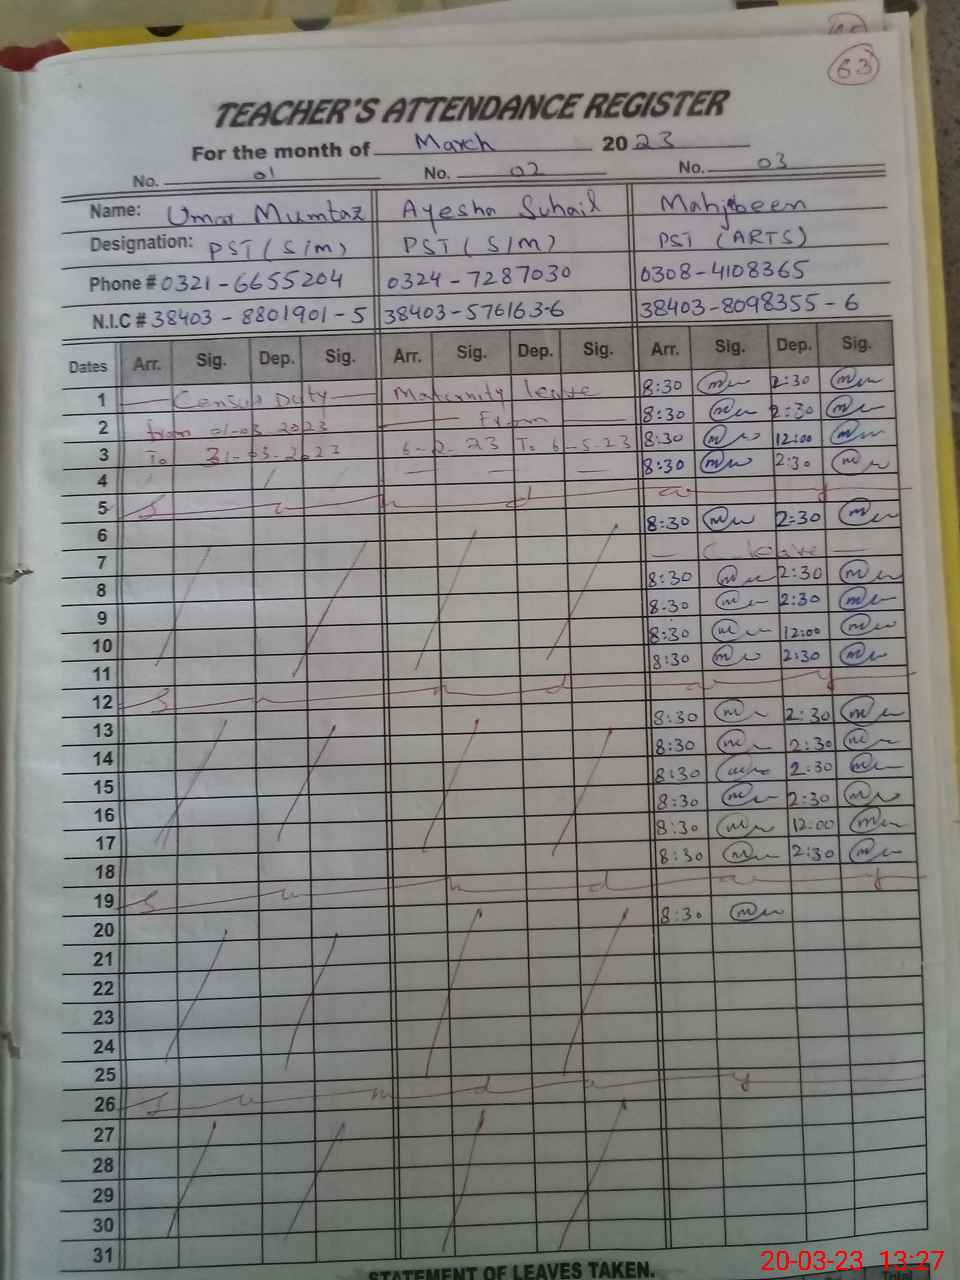 63
TEACHER'S ATTENDANCE REGISTER
For the month of March 2023
No. 01 No. 02 No. 03
Name: Umar Mumtaz Ayesha Suhail Mahjabeen
Designation: PST (S/M) PST (S/M) PST (ARTS)
Phone # 0321-6655204 0324-7287030 0308-4108365
N.I.C # 38403-8801901-5 38403-576163-6 38403-8098355-6
Dates Arr. Sig. Dep. Sig. Arr. Sig. Dep. Sig. Arr. Sig. Dep. Sig.
1 Census Duty Maternity leave 8:30 2:30
2 from 01-03-2023 From 8:30 2:30
3 To 31-03-2023 6-2-23 To 6-5-23 8:30 12:00
4 8:30 2:30
5 Sunday
6 8:30 2:30
7 C leave
8 8:30 2:30
9 8:30 2:30
10 8:30 12:00
11 8:30 2:30
12 Sunday
13 8:30 2:30
14 8:30 2:30
15 8:30 2:30
16 8:30 2:30
17 8:30 12:00
18 8:30 2:30
19 Sunday
20 8:30
21
22
23
24
25
26 Sunday
27
28
29
30
31
STATEMENT OF LEAVES TAKEN.
20-03-23 13:27